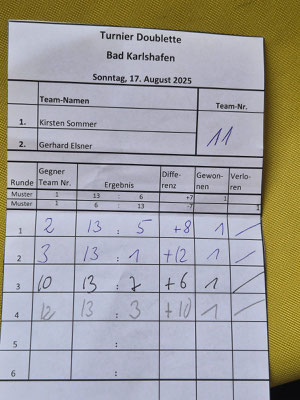 Turnier Doublette
Bad Karlshafen
Sonntag, 17. August 2025
Team-Namen Team-Nr.
1. Kirsten Sommer 11
2. Gerhard Elsner
Runde Gegner Team Nr. Ergebnis Diffe-renz Gewon-nen Verlo-ren
Muster 1 13 : 6 +7 1
Muster 1 6 : 13 -7 1
1 2 13 : 5 +8 1 /
2 3 13 : 1 +12 1 /
3 10 13 : 7 +6 1 /
4 12 13 : 3 +10 1 /
5 :
6 :